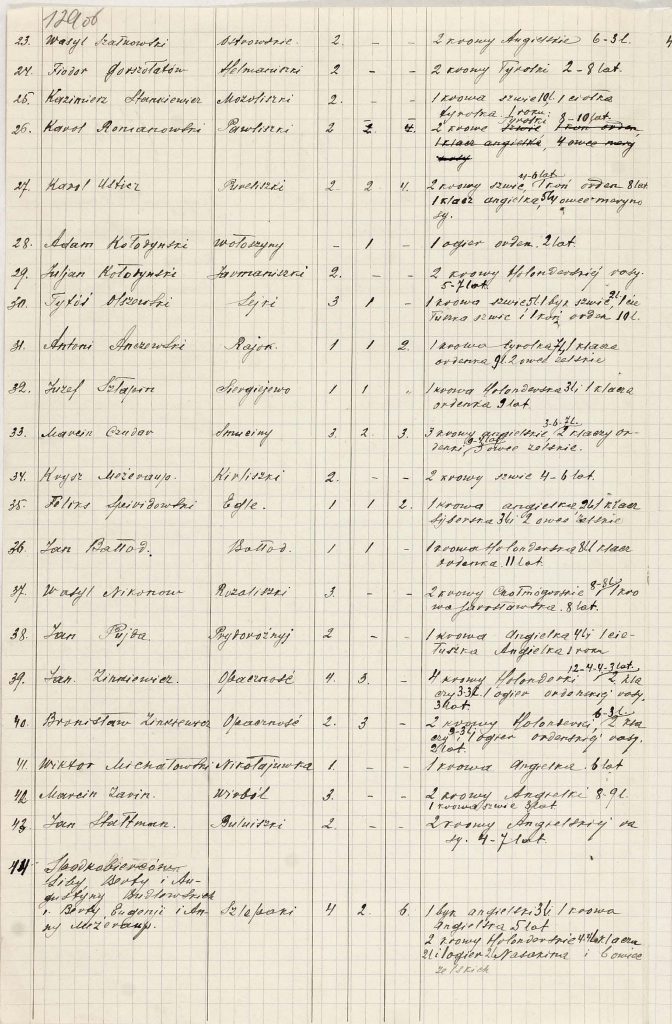 129 об
23. Wasyl Szatkowski Ostrowskie. 2. - - 2 krowy Angielskie 6-3 l. 4
24. Fiodor Helmaniszki 2 - - 2 krowy Tyrolki 2-8 lat.
25. Kazimierz Stankiewicz Mozoliszki 2. - - 1 krowa szwic 10 l. 1 ciołka
tyrolka 1 roku.
26. Karol Romanowski Pawliszki 2 2 4. 2 krowe tyrolki 8-10 lat.
1 klacz angielska 4 owce
27. Karol Usticz 2. 2 4. 2 krowy szwic, 4-6 lat 1 koń orden 8 lat
1 klacz angielka 5 l. 4 owce meryno
sy.
28. Adam Kołodynski Wołoszyny - 1 - 1 ogier orden. 2 lat.
29. Juljan Kołodynski Jarmaniszki 2. - - 2 krowy Holonderskiej rasy.
5-7 lat.
30. Olszewski Lejki 3 1 - 1 krowa szwic 5 l. 1 byk szwic, 2 l. 1 cie
łuszka szwic i 1 koń orden 10 l.
31. Antoni Anczewski Rajon. 1 1 2. 1 krowa tyrolka 7 l. 1 klacz
ordenka 9 l. 2 owce zelskie
32. Juzef Szlapin Siergiejewo 1 1 1 krowa Holonderska 3 l. i 1 klacz
ordenka 9 lat.
33. Marcin Czudar Smuciny 3. 2. 3. 3 krowy angielskie, 3-6-7 l. 2 klaczy or-
denki, 3 owce zelskie.
34. Krysz Meżeraup. Kirliszki 2. - - 2 krowy szwic 4-6 lat.
35. Feliks Spiridowski Egle. 1 1 2. 1 krowa angielka 2 l. 1 klacz
syberska 3 l. i 2 owce zelskie
36. Jan Bałłod. Bałłod. 1 1 - 1 krowa Holonderska 8 l. 1 klacz
ordenka 11 lat.
37. Wasyl Nikonow Rozaliszki 3. - - 2 krowy 8-8 l. i 1 kro
wa Jarosławska. 8 lat.
38. Jan Pujda Prydorożnyj 2 - - 1 krowa Angielka 4 l. i 1 cie-
łuszka Angielka 1 roku
39. Jan. Zinkiewicz. Opaczność 4. 3. - 4 krowy Holonderki 12-4-4-3 lat. 2 kla
czy 3-3 l. 1 ogier ordenskiej rasy.
3 lat.
40. Bronisław Zinkiewicz Opaczność 2. 3 - 2 krowy Holonderki, 6-3 l. 2 kla
czy i 1 ogier ordenskiej rasy.
2 lat.
41. Wiktor Michałowski Nikołajuwka 1. - - 1 krowa Angielka. 6 lat
42. Marcin Zarin. Wirbil 3. - - 2 krowy Angielki 8-9 l.
1 krowa szwic 3 lat
43. Jan Stattman. Buluiszki 2. - - 2 krowy Angielskiej ra
sy. 4-7 lat.
44. Spadkobierców
Liby Berty i Au-
gustyny Budlowskich
t. Berty, Eugenii i An-
ny Meżeraup. Szlapaki 4 2. 6. 1 byk angielski 3 l. i 1 krowa
angielska 5 lat
2 krowy Holonderskie 4-4 lat klacza
2 l. i ogier 2 l. i 6 owiec
zelskich